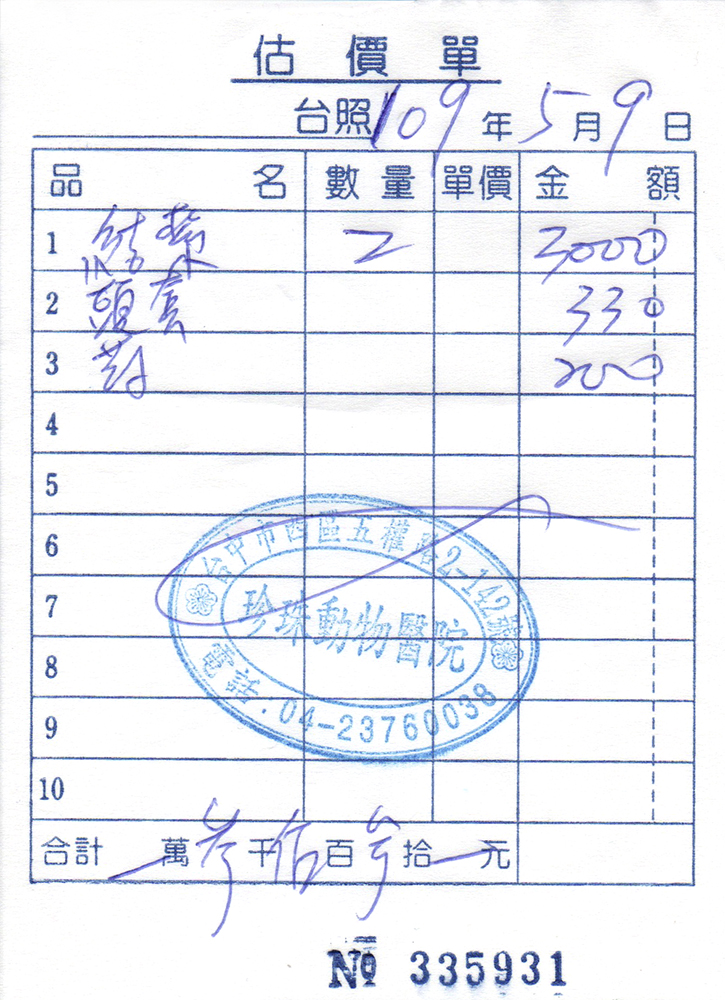 估價單
台照 109年5月9日
品名 數量 單價 金額
1 結紮 2 3000
2 頭套 330
3 200
4
5
6
7
8
9
10
台中市西區五權路2-142號
珍珠動物醫院
電話.04-23760038
合計 萬參千伍百參拾元
№ 335931